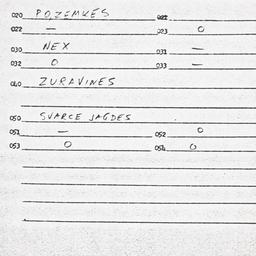 020 POZEMKES
022 — 023 O
030 NEX 031 —
032 O 033 —
040 ZURAVINES
050 SVARCE JAGDES
051 — 052 O
053 O 054 O